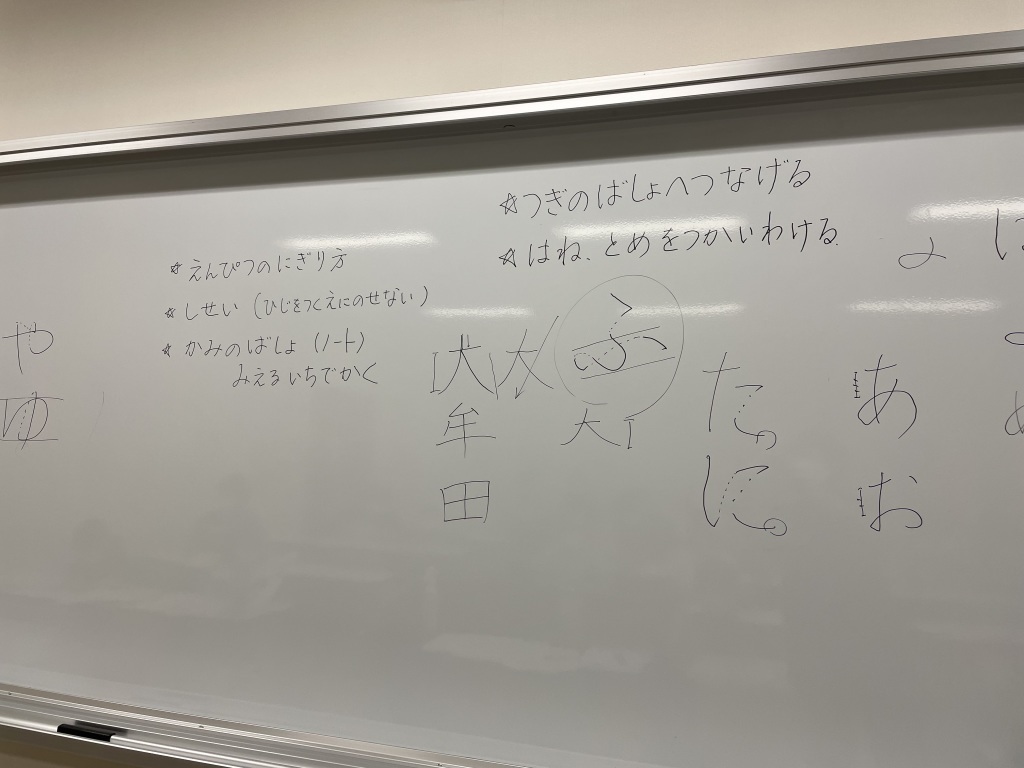 ☆つぎのばしょへつなげる
☆はね、とめをつかいわける.
☆えんぴつのにぎり方
☆しせい(ひじをつくえにのせない)
☆かみのばしょ(ノート)
みえるいちでかく
や
ゆ
大
牟
田
大
ふ
大
た
に
あ
お